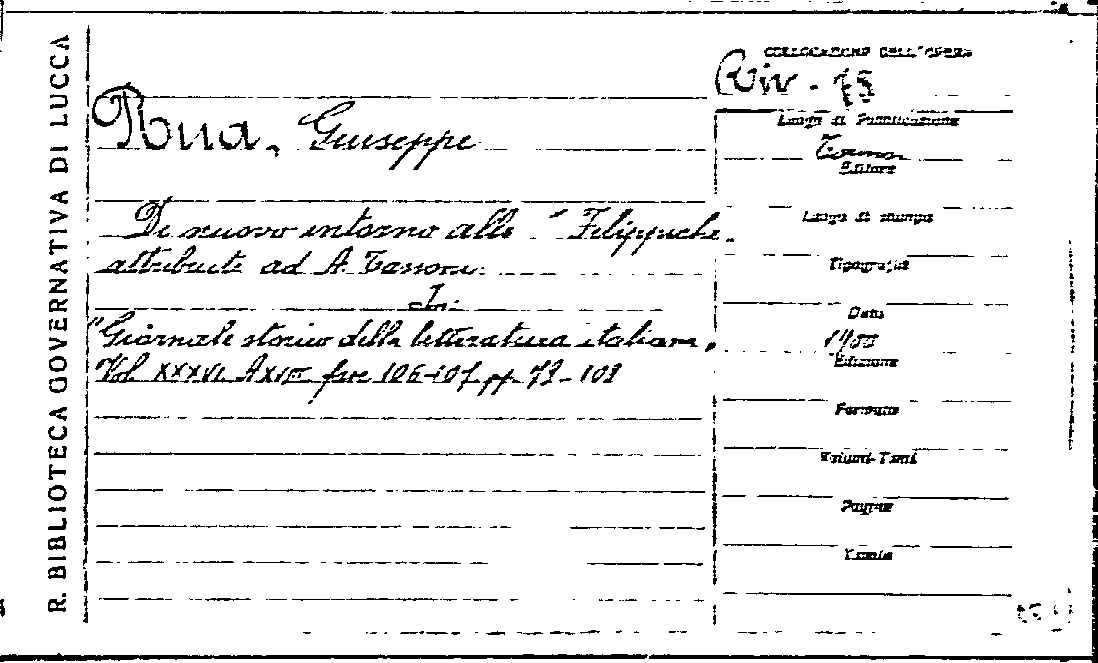 R. BIBLIOTECA GOVERNATIVA DI LUCCA
COLLOCAZIONE DELL'OPERA
Riv. 75
Rua, Giuseppe
Di nuovo intorno alle "Filippiche"
attribuite ad A. Tassoni.
In:
"Giornale storico della letteratura italiana,
Vol. XXXVI. fasc 106-107, pp.
Luogo di Pubblicazione
Torino
Editore
Luogo di stampa
Tipografia
Data
1900
Edizione
Formato
Volumi-Tomi
Pagine